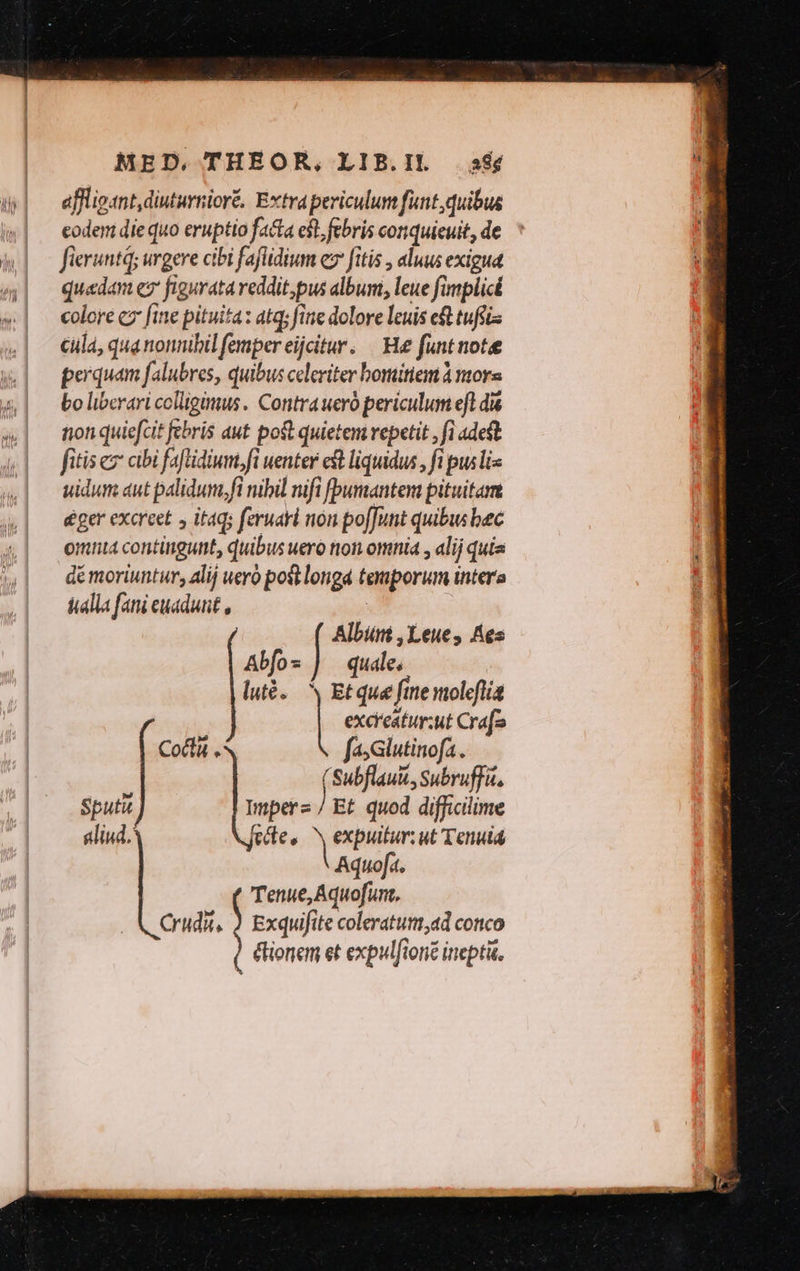 MED. THEOR. LIB. II. 285
affligant,diuturniorē. Extra periculum ſunt,quibus
eodem die quo eruptio facta eſt,febris conquieuit, de
ſieruntq́; urgere cibi faſtidium & ſitis , aluus exigua
quædam & figurata reddit,pus album, leue ſimplicē
colore & ſine pituita : atq; ſine dolore leuis eſt tuſsi-
cula, qua nonnihil ſemper eijcitur. Hæ ſunt notæ
perquam ſalubres, quibus celeriter hominem à mor-
bo liberari colligimus. Contra uerò periculum eſt dū
non quieſcit febris aut poſt quietem repetit , ſi adeſt
ſitis & cibi faſtidium,ſi uenter eſt liquidus , ſi pus li-
uidum aut palidum,ſi nihil niſi ſpumantem pituitam
æger excreet , itaq; ſeruari non poſſunt quibus hæc
omnia contingunt, quibus uero non omnia , alij qui-
dē moriuntur, alij uerò poſt longa temporum inter-
ualla ſani euadunt ,
Album , Leue, Ae-
Abſo- quale.
lutè. Et quæ ſine moleſtia
excreātur:ut Craſ-
Coctū . ſa,Glutinoſa.
Subflauū, Subruffū,
Sputū Imper- Et quod difficilime
aliud. fecte, expuitur: ut Tenuia
Aquoſa.
Tenue,Aquoſum.
Crudū, Exquiſite coleratum,ad conco
ctionem et expulſionē ineptū.